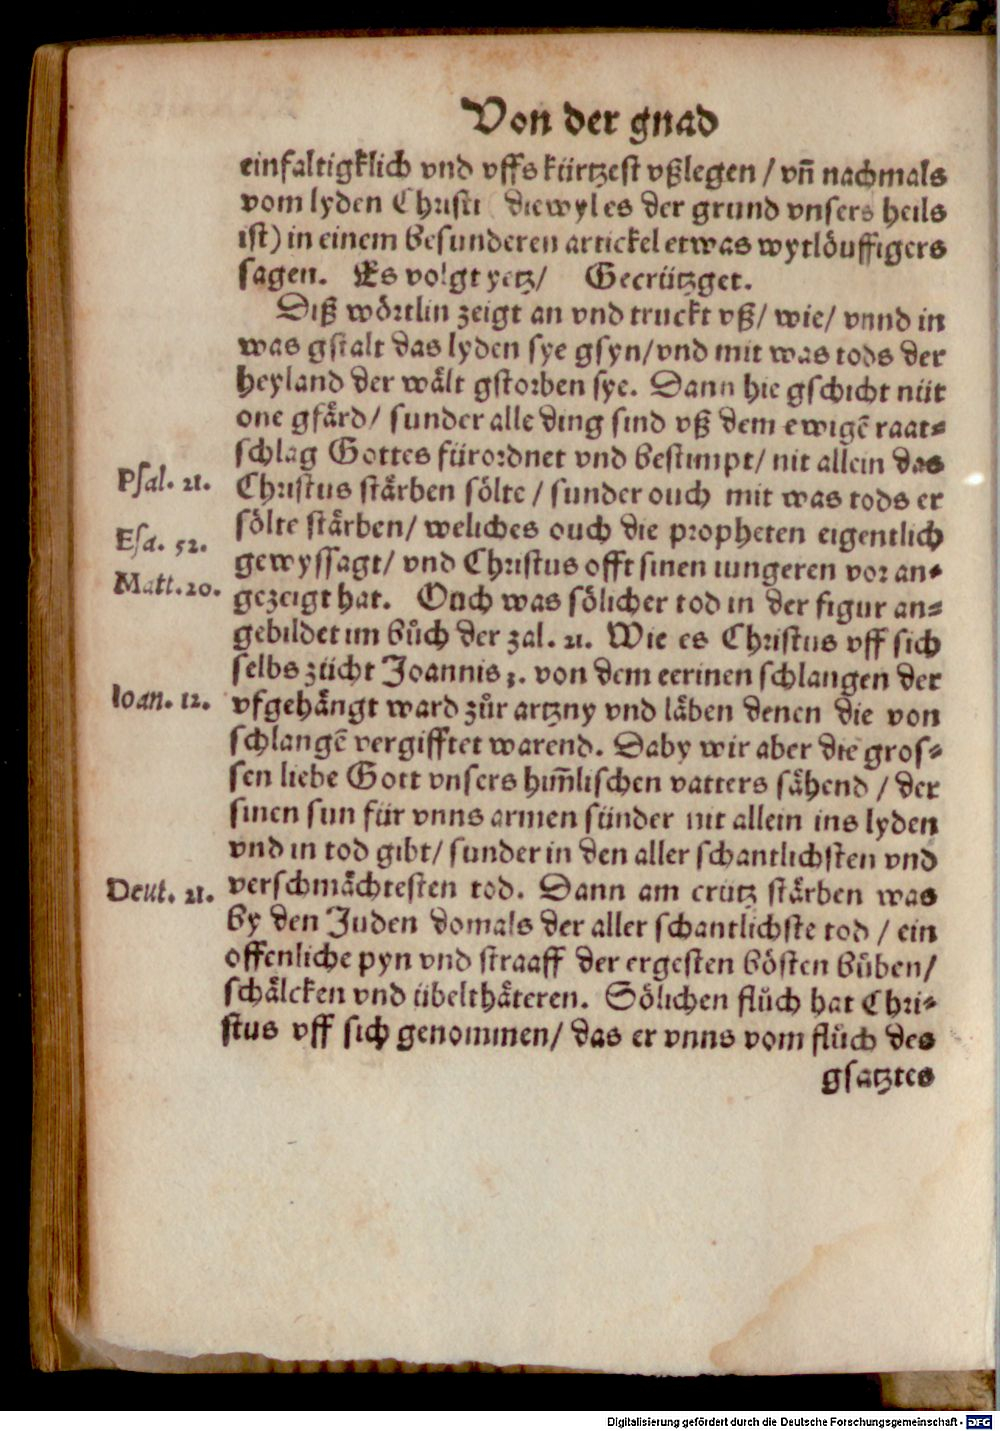 Von der gnad
einfaltigklich vnd vffs kürtzest vßlegen / vñ nachmals
vom lyden Christi (diewyl es der grund vnsers heils
ist) in einem besunderen artickel etwas wytlöuffigers
sagen. Es volgt yetz/ Gecrützget.
Diß wörtlin zeigt an vnd truckt vß/ wie/ vnnd in
was gstalt das lyden sye gsyn/ vnd mit was tods der
heyland der wält gstorben sye. Dann hie gschicht nüt
one gfärd/ sunder alle ding sind vß dem ewigē raat⸗
schlag Gottes fürordnet vnd bestimpt/ nit allein das
Psal. 21.
Christus stärben sölte / sunder ouch mit was tods er
sölte stärben/ weliches ouch die propheten eigentlich
Esa. 52.
gewyssagt/ vnd Christus offt sinen iungeren vor an⸗
Matt. 20.
gezeigt hat. Ouch was sölicher tod in der figur an⸗
gebildet im bůch der zal. 21. Wie es Christus vff sich
selbs zücht Joannis 3. von dem eerinen schlangen der
Ioan. 12.
vfgehängt ward zůr artzny vnd läben denen die von
schlangē vergifftet warend. Daby wir aber die gros⸗
sen liebe Gott vnsers him̃lischen vatters sähend / der
sinen sun für vnns armen sünder nit allein ins lyden
vnd in tod gibt/ sunder in den aller schantlichsten vnd
Deut. 21.
verschmächtesten tod. Dann am crütz stärben was
by den Juden domals der aller schantlichste tod / ein
offenliche pyn vnd straaff der ergesten bösten bůben/
schälcken vnd übelthäteren. Sölichen flůch hat Chri⸗
stus vff sich genommen/ das er vnns vom flůch des
gsatztes
Digitalisierung gefördert durch die Deutsche Forschungsgemeinschaft - DFG